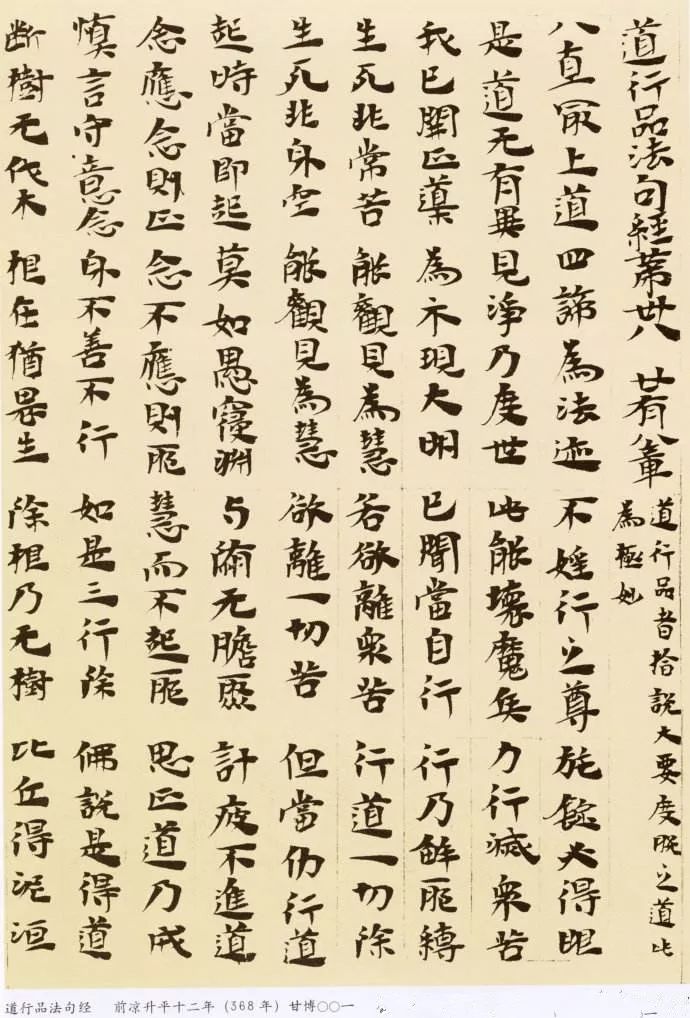 道行品法句經苐卅八 廿有八章 道行品者拾說大要度脫之道此
為極妙
八直冣上道 四諦為法迹 不婬行之尊 施鐙必得眼
是道无有異 見淨乃度世 此能壞魔兵 力行滅衆苦
我已開正 為示現大明 已聞當自行 行乃解耶縛
生死非常苦 能觀見為慧 若欲離衆苦 行道一切除
生死非身空 能觀見為慧 欲離一切苦 但當仂行道
起時當即起 莫如愚覆淵 与无瞻聚 計疲不進道
念應念則正 念不應則耶 慧而不起耶 思正道乃成
慎言守意念 身不善不行 如是三行除 佛說是得道
断樹无伐木 根在猶生 除根乃无樹 比丘得泥洹
道行品法句经 前凉升平十二年（368年）甘博〇〇一
一